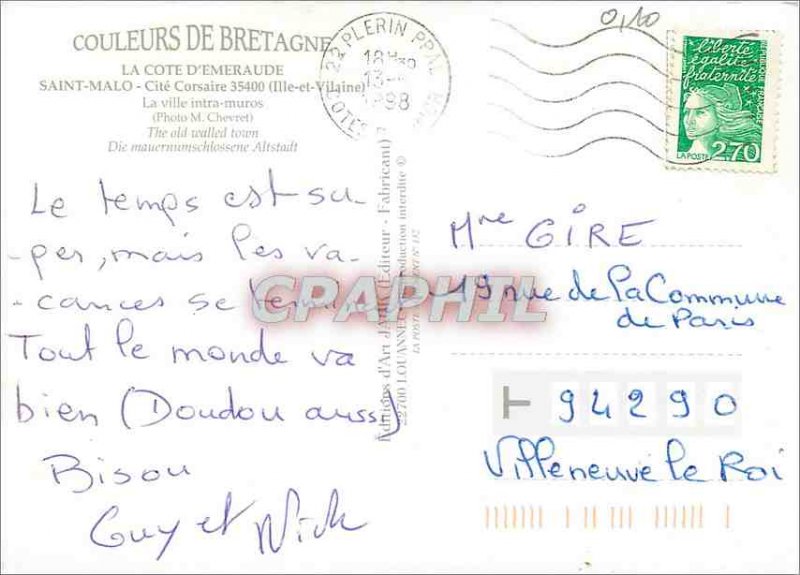 0,10
COULEURS DE BRETAGNE
LA COTE D'EMERAUDE
SAINT-MALO - Cité Corsaire 35400 (Ille-et-Vilaine)
La ville intra-muros
(Photo M. Chevret)
The old walled town
Die mauernumschlossene Altstadt
22 PLERIN PPAL
18H30
13
1998
COTES
liberté
égalité
fraternité
REPUBLIQUE FRANÇAISE
LA POSTE 2,70
Le temps est su-
-per, mais les va-
-cances se
Tout le monde va
bien (Doudou aussi)
Bisou
Guy et Nick
Editions d'Art JACK (Editeur - Fabricant)
22700 LOUANNEC Reproduction interdite ©
LA POSTE N° 152
CPARPHIL
Mme GIRE
19 rue de la Commune
de Paris
94290
Villeneuve le Roi